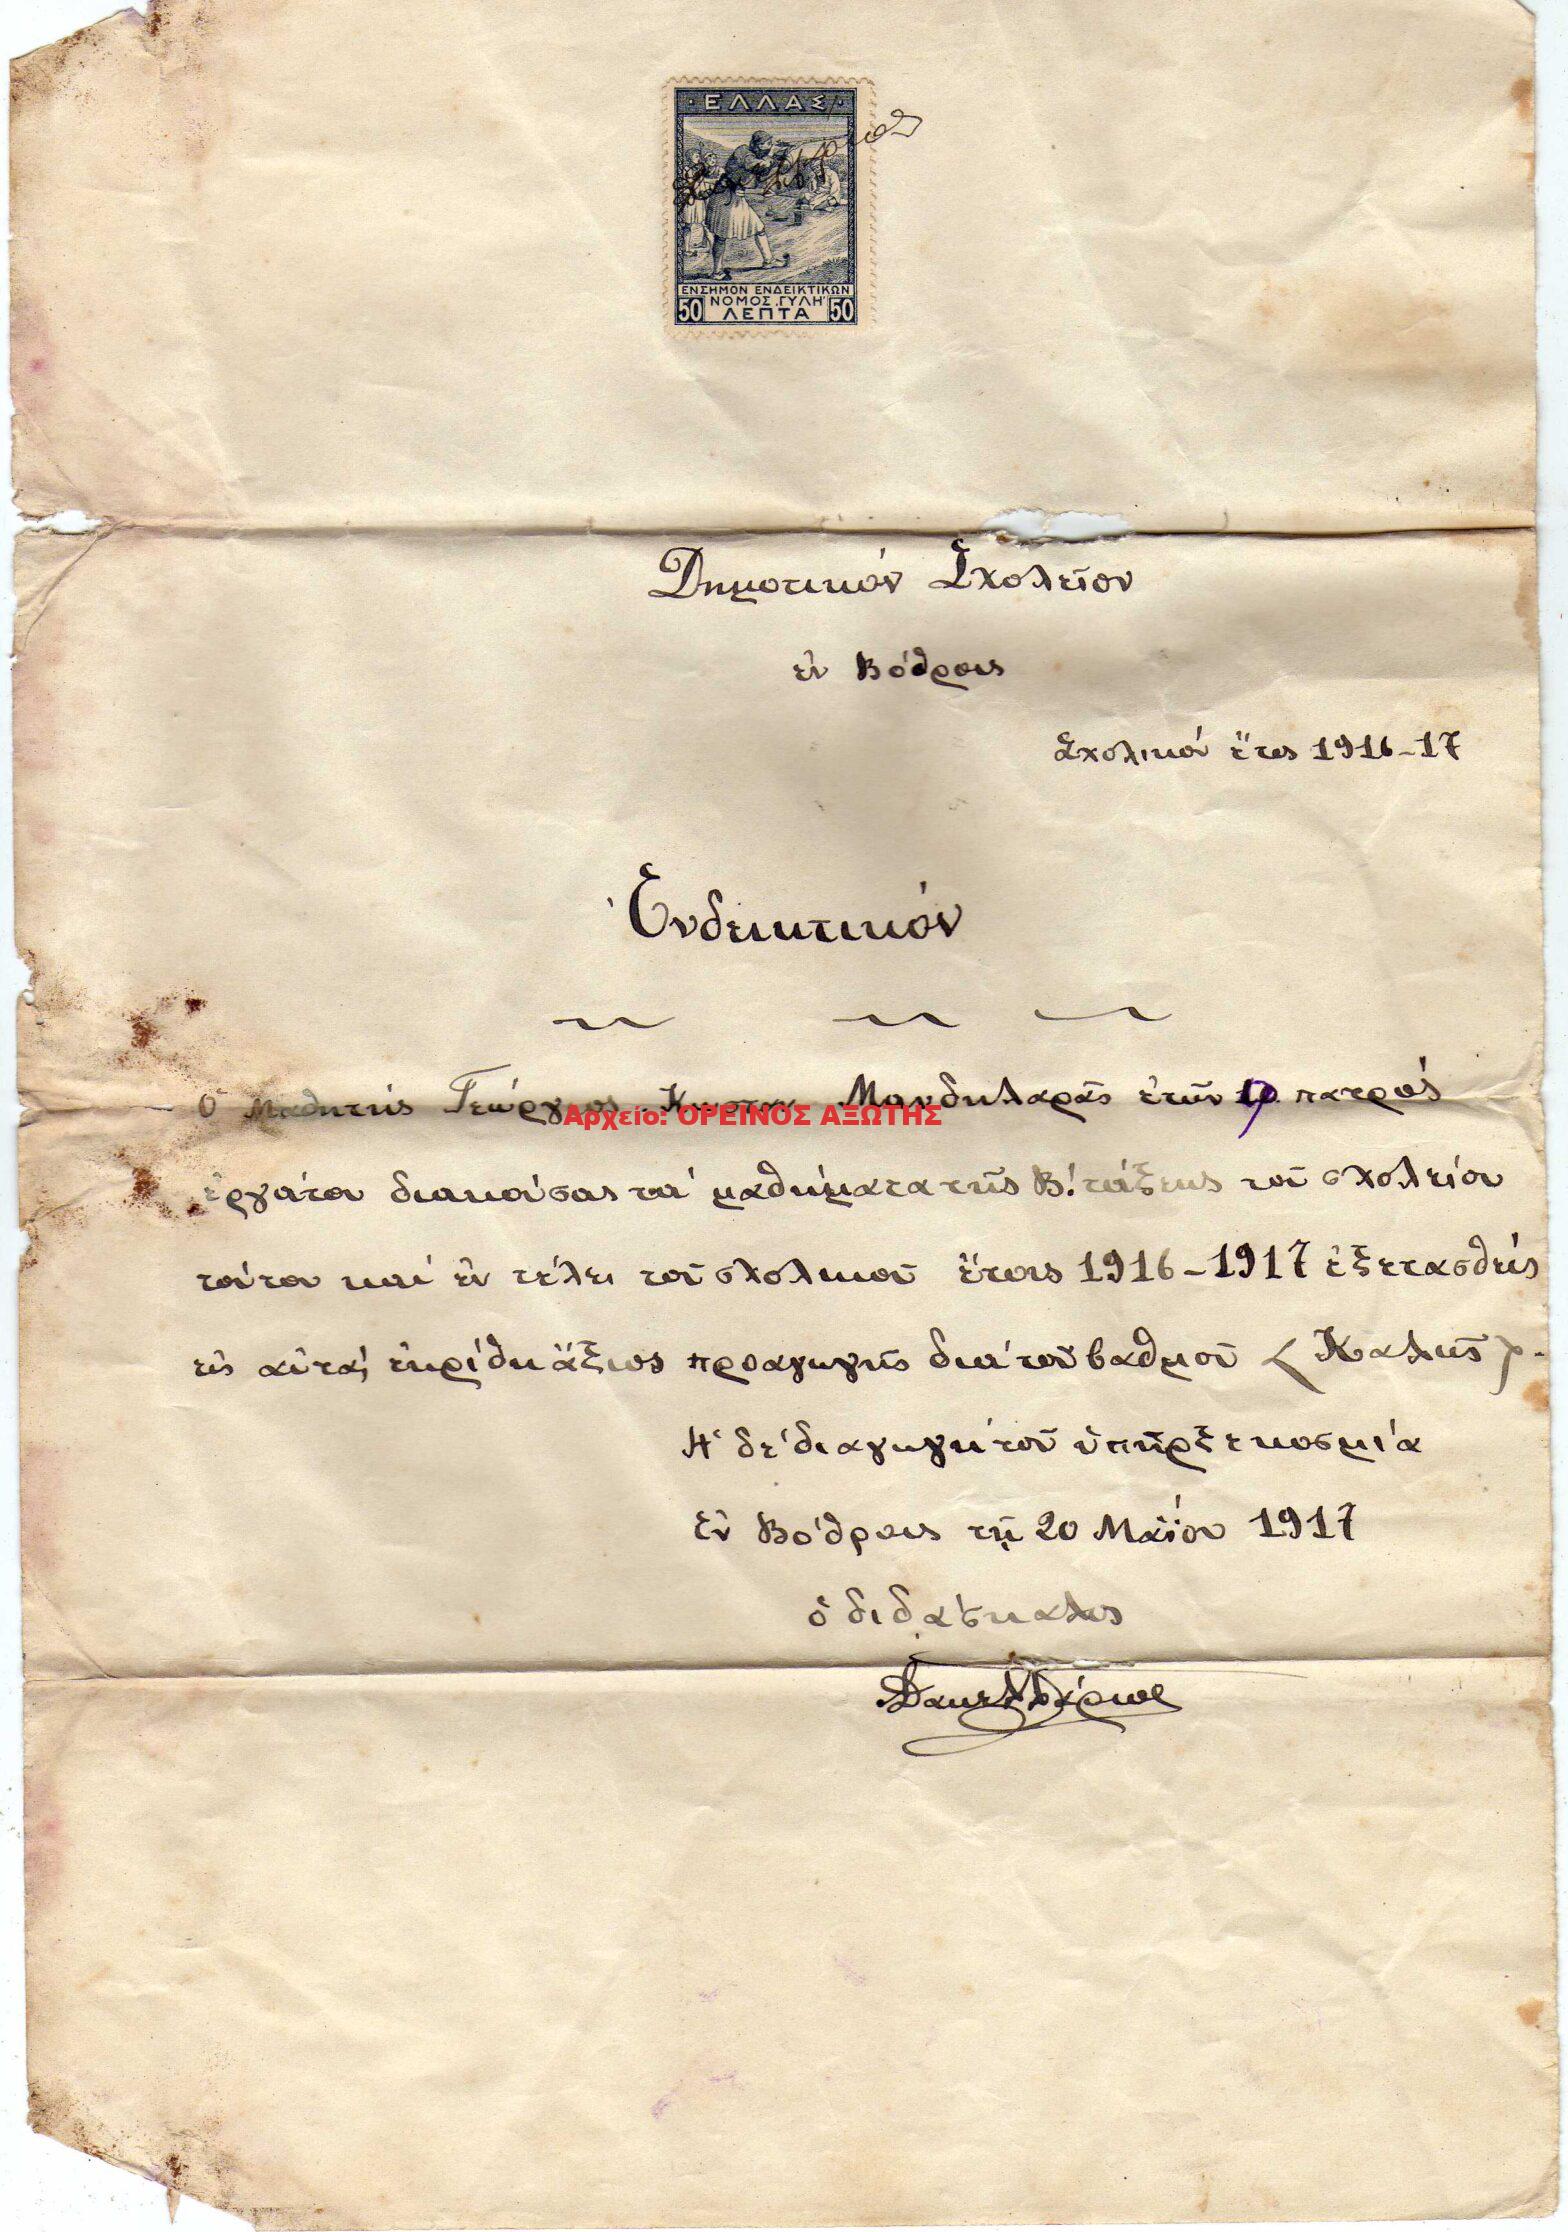 ΕΛΛΑΣ
ΕΝΣΗΜΟΝ ΕΝΔΕΙΚΤΙΚΩΝ
ΝΟΜΟΣ ͵ΓΥΛΗʹ
50 ΛΕΠΤΑ 50
Δημοτικόν Σχολεῖον
ἐν Βόθροις
Σχολικόν ἔτος 1916-17
Ἐνδεικτικόν
Ὁ μαθητής Γεώργιος Μανδηλαρᾶς ἐτῶν πατρός
Αρχείο: ΟΡΕΙΝΟΣ ΑΞΩΤΗΣ
ἐργάτου διακούσας τά μαθήματα τῆς Β! τάξεως τοῦ σχολείου
τούτου καί ἐν τέλει τοῦ σχολικοῦ ἔτους 1916-1917 ἐξετασθείς
εἰς αὐτά, ἐκρίθη ἄξιος προαγωγῆς διά τοῦ βαθμοῦ (Καλῶς).
Ἡ δέ διαγωγή τοῦ ὑπῆρξε κοσμία
Ἐν Βόθροις τῇ 20 Μαΐου 1917
ὁ διδάσκαλος